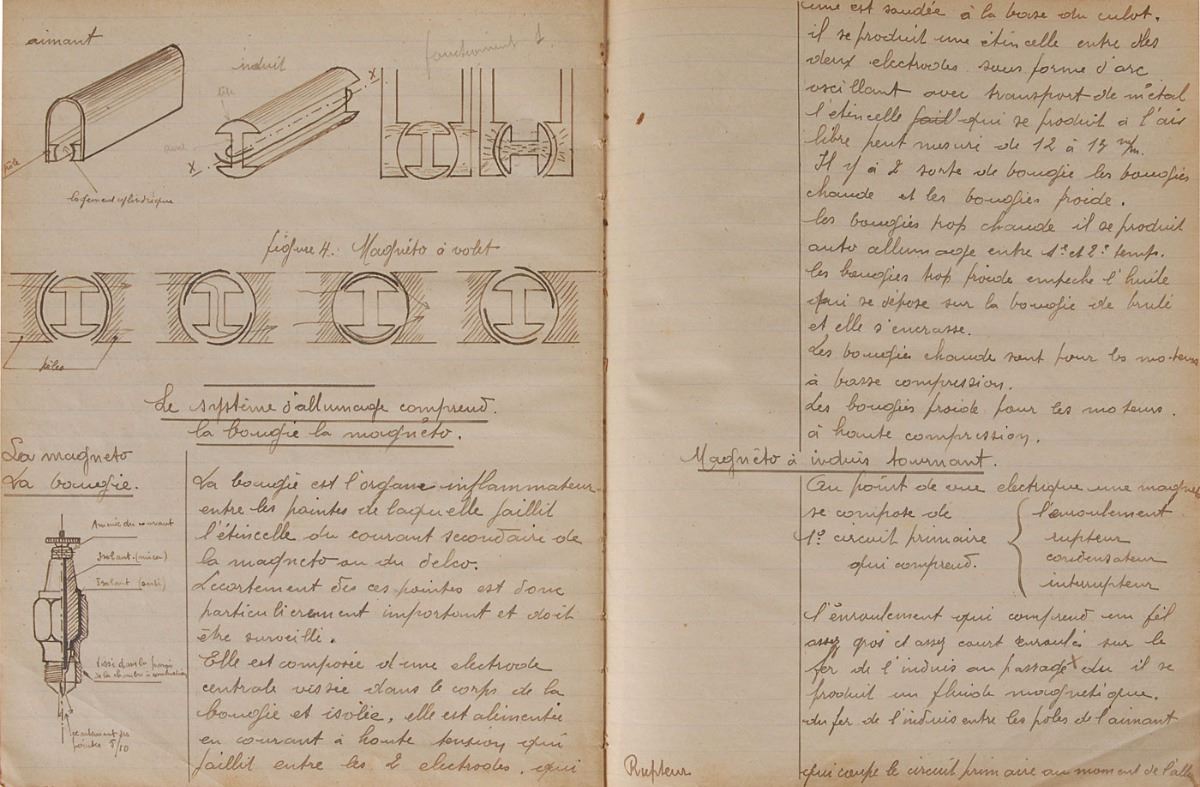 aimant
induit
fonctionnent 1.
X
tôle
axe
X
pôle
logement cylindrique
figure 4. Magnéto à volet
pôles
Le système d'allumage comprend.
la bougie la magnéto.
La magneto
La bougie.
Arrivée du courant
Isolant (mica)
Isolant
Vissé dans la paroi
de la chambre à combustion
écartement des
pointes 5/10
La bougie est l'organe inflammateur
entre les pointes de laquelle jaillit
l'étincelle du courant secondaire de
la magneto ou du delco.
L'ecartement des ces pointes est donc
particulierement important et doit
être surveillé.
Elle est composée d'une electrode
centrale vissée dans le corps de la
bougie et isolée, elle est alimentée
en courant à haute tension qui
jaillit entre les 2 electrodes. qui
une est soudée à la base du culot.
il se produit une étincelle entre des
deux electrodes sous forme d'arc
oscillant avec transport de métal
l'étincelle fait qui se produit à l'air
libre peut mesuré de 12 à 15 m/m.
Il y à 2 sorte de bougie les bougies
chaude et les bougies froide.
les bougies trop chaude il se produit
auto allumage entre 1° et 2° temps.
les bougies trop froide empeche l'huile
qui se dépose sur la bougie de brulé
et elle s'encrasse.
Les bougies chaude sont pour les moteurs
à basse compression.
Les bougies froide pour les moteurs.
à haute compression.
Magnéto à induis tournant.
Au point de vue electrique une magnet
se compose de
1° circuit primaire
qui comprend.
l'enroulement
rupteur
condensateur
interrupteur
l'énroulement qui comprend un fil
assez gros et assez court enroulés sur le
fer de l'induis au passage x du il se
produit un fluide magnetique.
du fer de l'induis entre les pôles de l'aimant
Rupteur
qui coupe le circuit primaire au moment de l'allu